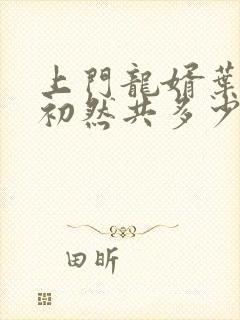 上門龍婿葉
初然共多少
田昕